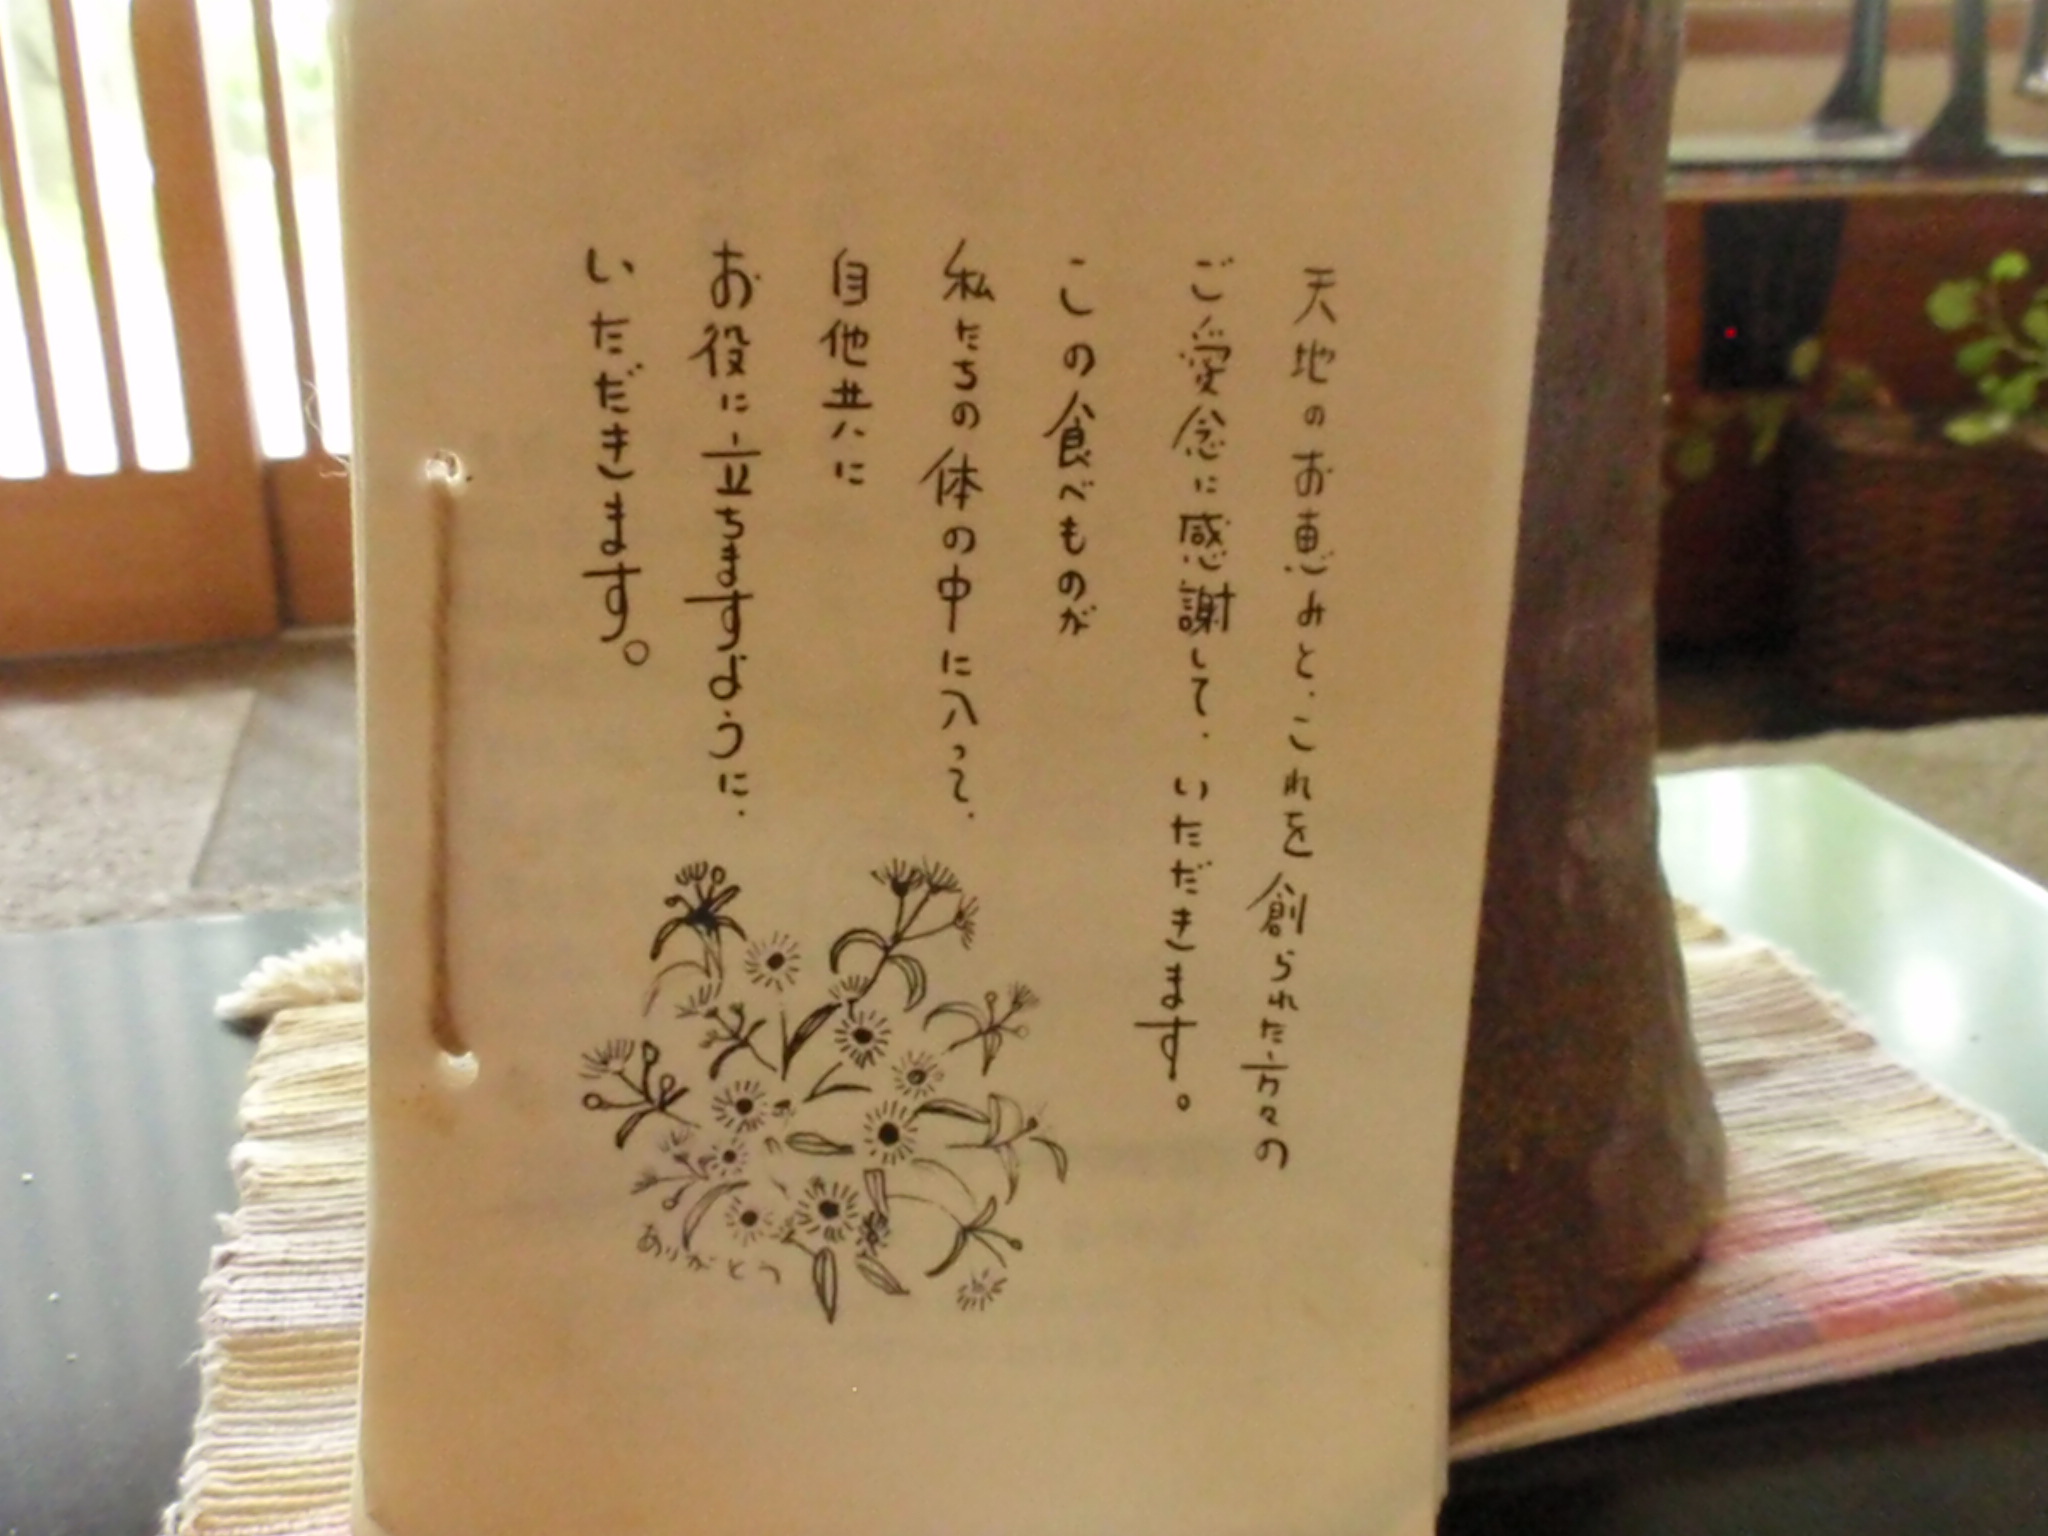 天地のお恵みと、これを創られた方々の
ご愛念に感謝して、いただきます。
この食べものが
私たちの体の中に入って、
自他共に
お役に立ちますように、
いただきます。
ありがとう